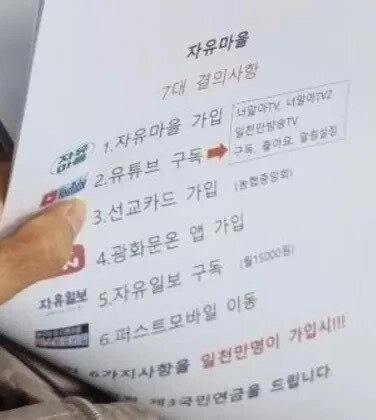 자유마을
7대 결의사항
자유
마을
1.자유마을 가입
너알아TV, 너알아TV2
일천만방송TV
구독, 좋아요, 알림설정
YouTube
2.유튜브 구독
3.선교카드 가입 (농협중앙회)
4.광화문온 앱 가입
자유일보
5.자유일보 구독 (월15000원)
6.퍼스트모바일 이동
6가지사항을 일천만명이 가입시!!!
제3국민연금을 드립니다